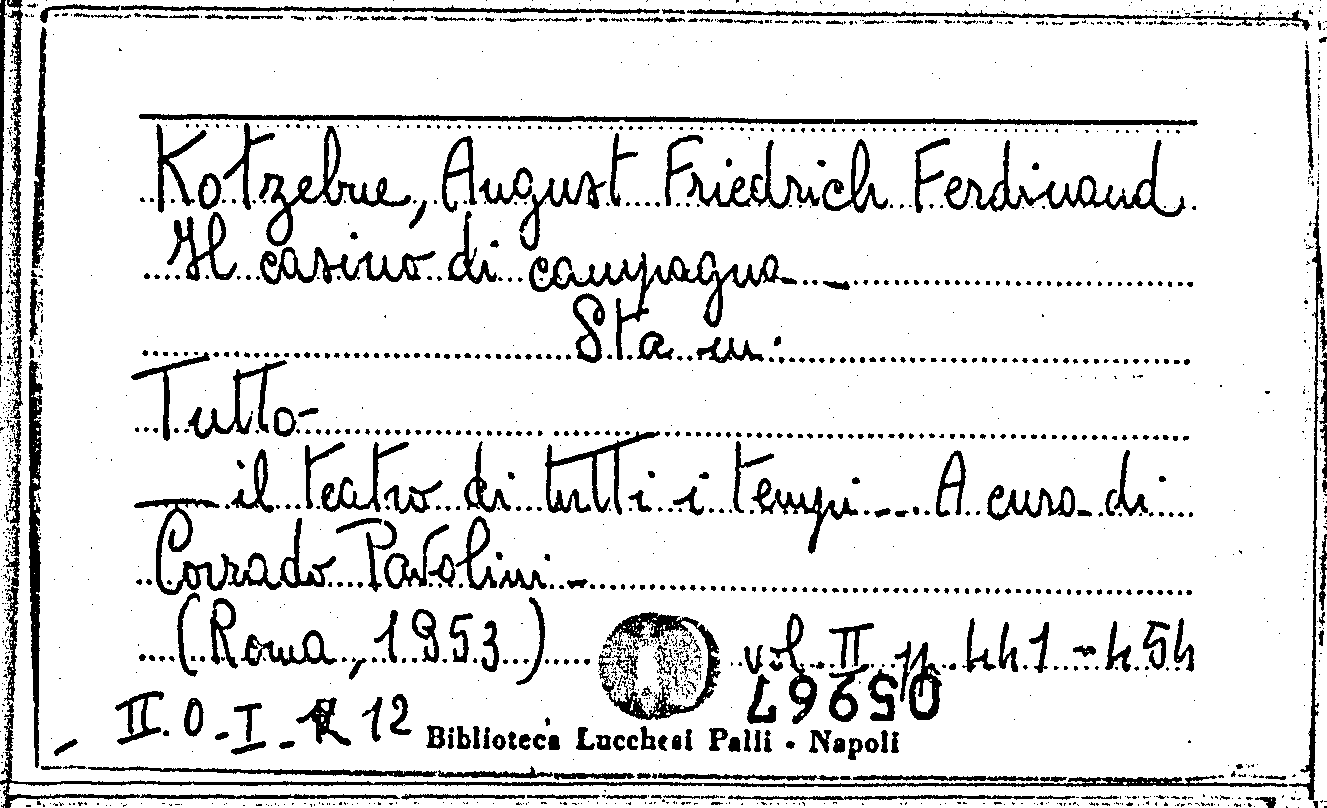 Kotzebue, August Friedrich Ferdinand
Il casino di campagna _
Sta in:
Tutto-
— il teatro di tutti i tempi _. A cura di
Corrado Pavolini -
(Roma, 1953) vol. II p. 441 - 454
05967
_ II. O - I - 12
Biblioteca Lucchesi Palli - Napoli